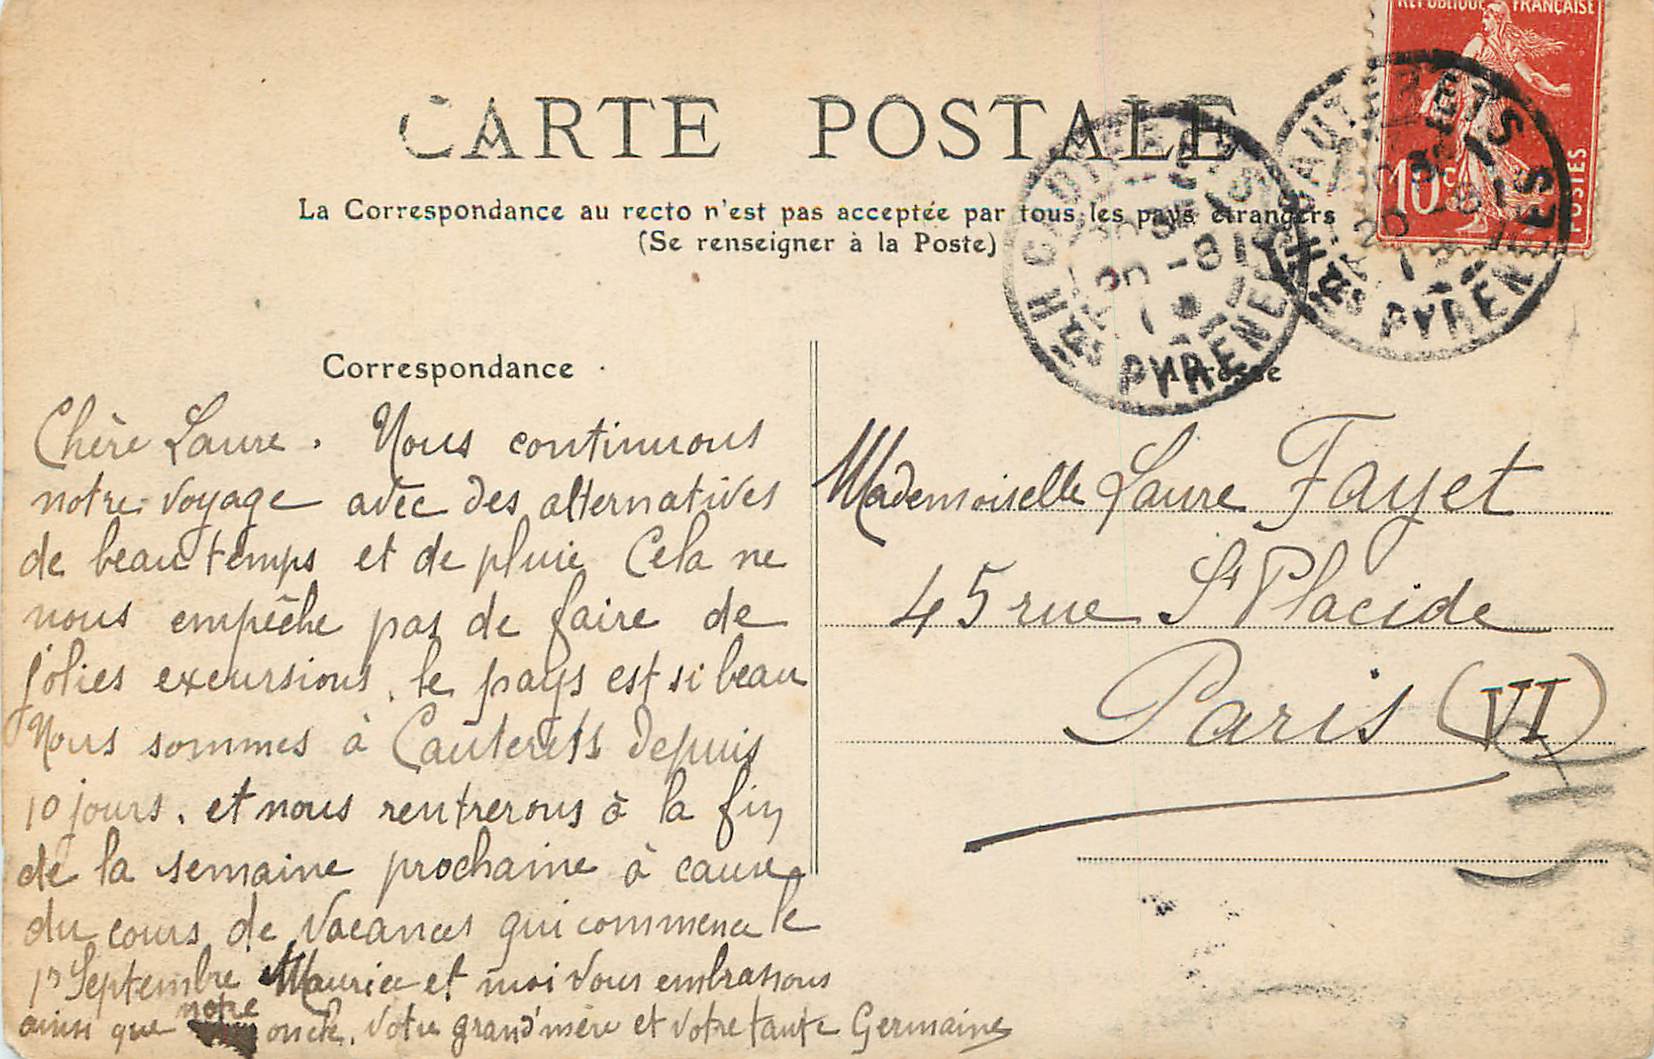 CARTE POSTALE
La Correspondance au recto n'est pas acceptée par tous les pays étrangers
(Se renseigner à la Poste)
RÉPUBLIQUE FRANÇAISE
10c
POSTES
CAUTERETS
20 -8
HTES PYRENEES
CAUTERETS
20 -8
HTES PYRENEES
Correspondance
Chère Laure. Nous continuons
notre voyage avec des alternatives
de beau temps et de pluie Cela ne
nous empêche pas de faire de
jolies excursions, le pays est si beau
Nous sommes à Cauterets depuis
10 jours, et nous rentrerons à la fin
de la semaine prochaine à cause
du cours de vacances qui commence le
1er Septembre Maurice et moi vous embrassons
ainsi que notre oncle, votre grand'mère et votre tante Germaine
Adresse
Mademoiselle Laure Fayet
45 rue St Placide
Paris (VI)